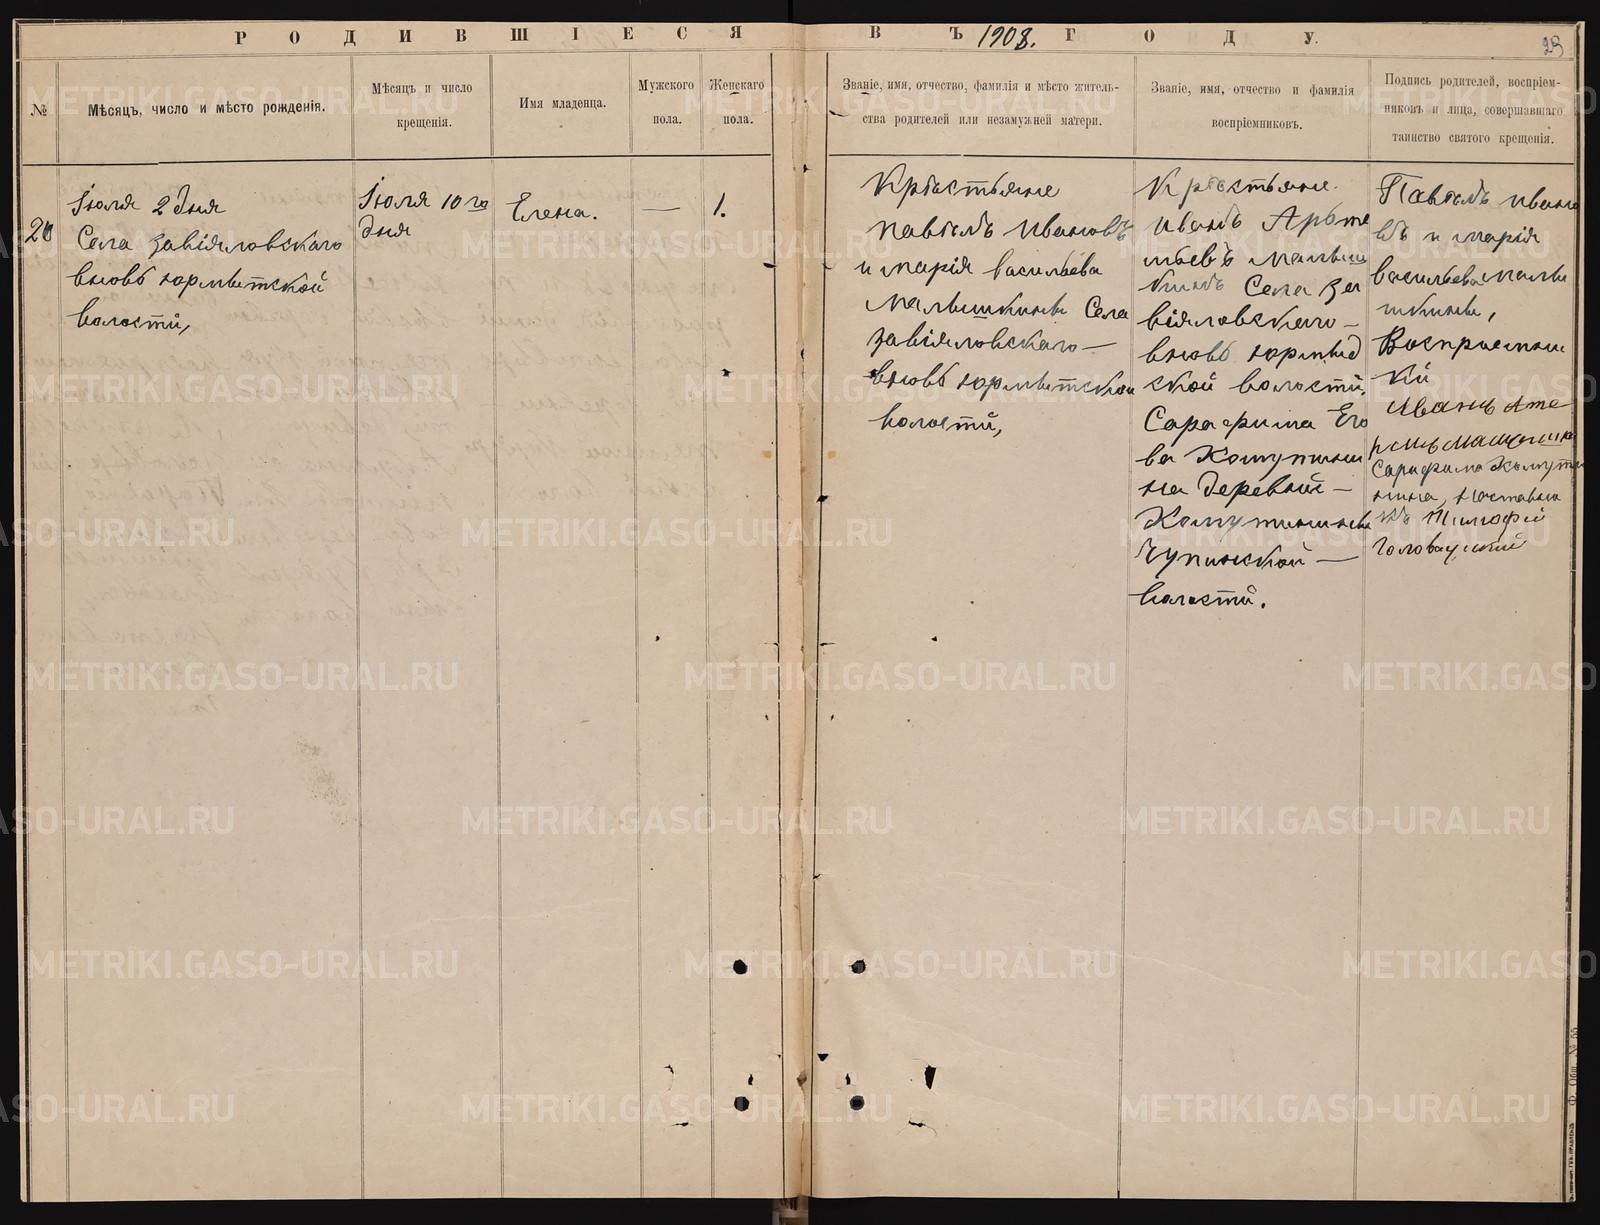 РОДИВШІЕСЯ ВЪ 1908. ГОДУ.
№
Мѣсяцъ, число и мѣсто рожденія.
Мѣсяцъ и число
крещенія.
Имя младенца.
Мужского
пола.
Женскаго
пола.
Званіе, имя, отчество, фамилія и мѣсто житель-
ства родителей или незамужней матери.
Званіе, имя, отчество и фамилія
воспріемниковъ.
Подпись родителей, воспріем-
никовъ и лица, совершавшаго
таинство святого крещенія.
Іюля 2 дня
Села завіяловскаго
вновь юрмытской
волости,
Іюля 10 го
дня
Елена.
—
1.
Крѣстьяне
павѣлъ Ивановъ
и марія васильѣва
малышкины Села
завіяловскаго—
вновь юрмытской
волости,
Крѣстьяне.
иванъ Артѣ
мьевъ малыш
кинъ Села за
віяловскаго—
вновь юрмыт
ской волости,
Сарафима Его
ва Комутини
на деревни—
Комутинины
Чупинской—
волости.
Павѣлъ ивано
въ и марія
васильева малы
шкины,
Воспріемни
ки
Иванъ
Сарафима Комути
нина, Наставни
къ Тимофѣй
METRIKI.GASO-URAL.RU